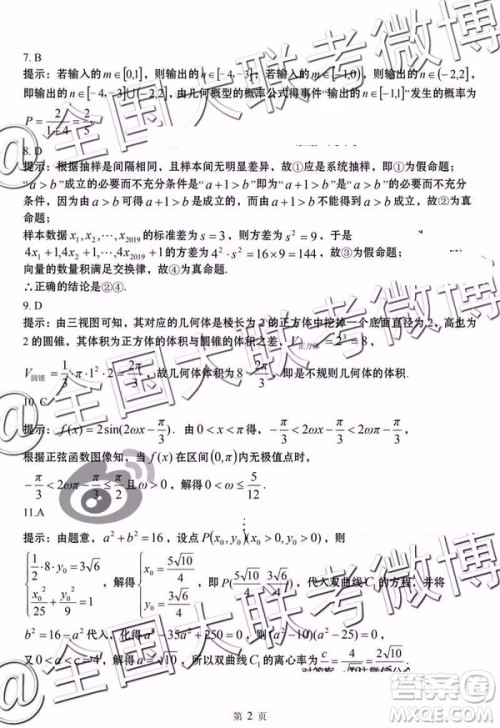 7. B
提示：若输入的 m∈[0,1]，则输出的 n∈[-4,-3]；若输入的 m∈[-1,0)，则输出的 n∈(-2,2]，
即输出的 n∈[-4,-3]∪(-2,2]，由几何概型的概率公式得事件“输出的 n∈[-1,1]”发生的概率为
8. D
提示：根据抽样是间隔相同，且样本间无明显差异，故①应是系统抽样，即①为假命题；
“a>b”成立的必要而不充分条件是“a+1>b”即为“a+1>b”是“a>b”成立的必要而不充分
条件，因为由 a>b 可得 a+1>b 成立，而由 a+1>b 不可得 a>b 成立，故②为真
命题；
样本数据 x₁,x₂,⋯,x₂₀₁₉ 的标准差为 s=3，则方差为 s²=9，于是
4x₁+1,4x₂+1,⋯,4x₂₀₁₉+1 的方差为 4²·s²=16×9=144，故③为假命题；
向量的数量积满足交换律，故④为真命题；
∴正确的结论是②④.
9. D
提示：由三视图可知，其对应的几何体是棱长为 2 的正方体中挖掉一个底面直径为 2，高为
2 的圆锥，其体积为正方体的体积与圆锥的体积之差，V正方体=2³=8，
V圆锥=1/3·π·1²·2=2π/3，故几何体的体积为 8-2π/3，即是不规则几何体的体积.
10. C
提示：f(x)=2sin(2ωx-π/3). 由 0<x<π 得，-π/3<2ωx-π/3<2ωπ-π/3，
根据正弦函数图像知，当 f(x) 在区间(0,π)内无极值点时，
-π/3<2ωπ-π/3≤π/2 且 ω>0，解得 0<ω≤5/12.
11.A
提示：由题意，a²+b²=16，设点 P(x₀,y₀)(x₀>0,y₀>0)，则
{1/2·8·y₀=3√6, x₀²/25+y₀²/9=1, 解得 {x₀=5√10/4, y₀=3√6/4, 即 P(5√10/4,3√6/4)，代入双曲线 C₁ 的方程，并将
b²=16-a² 代入，化得 a⁴-35a²+250=0，则 (a²-10)(a²-25)=0，
又 0<a<c=4，解得 a=√10，所以双曲线 C₁ 的离心率为 c/a=4/√10=2√10/5
第 2 页
@全国大联考微博
@全国大联考微博
@全国大联考微博